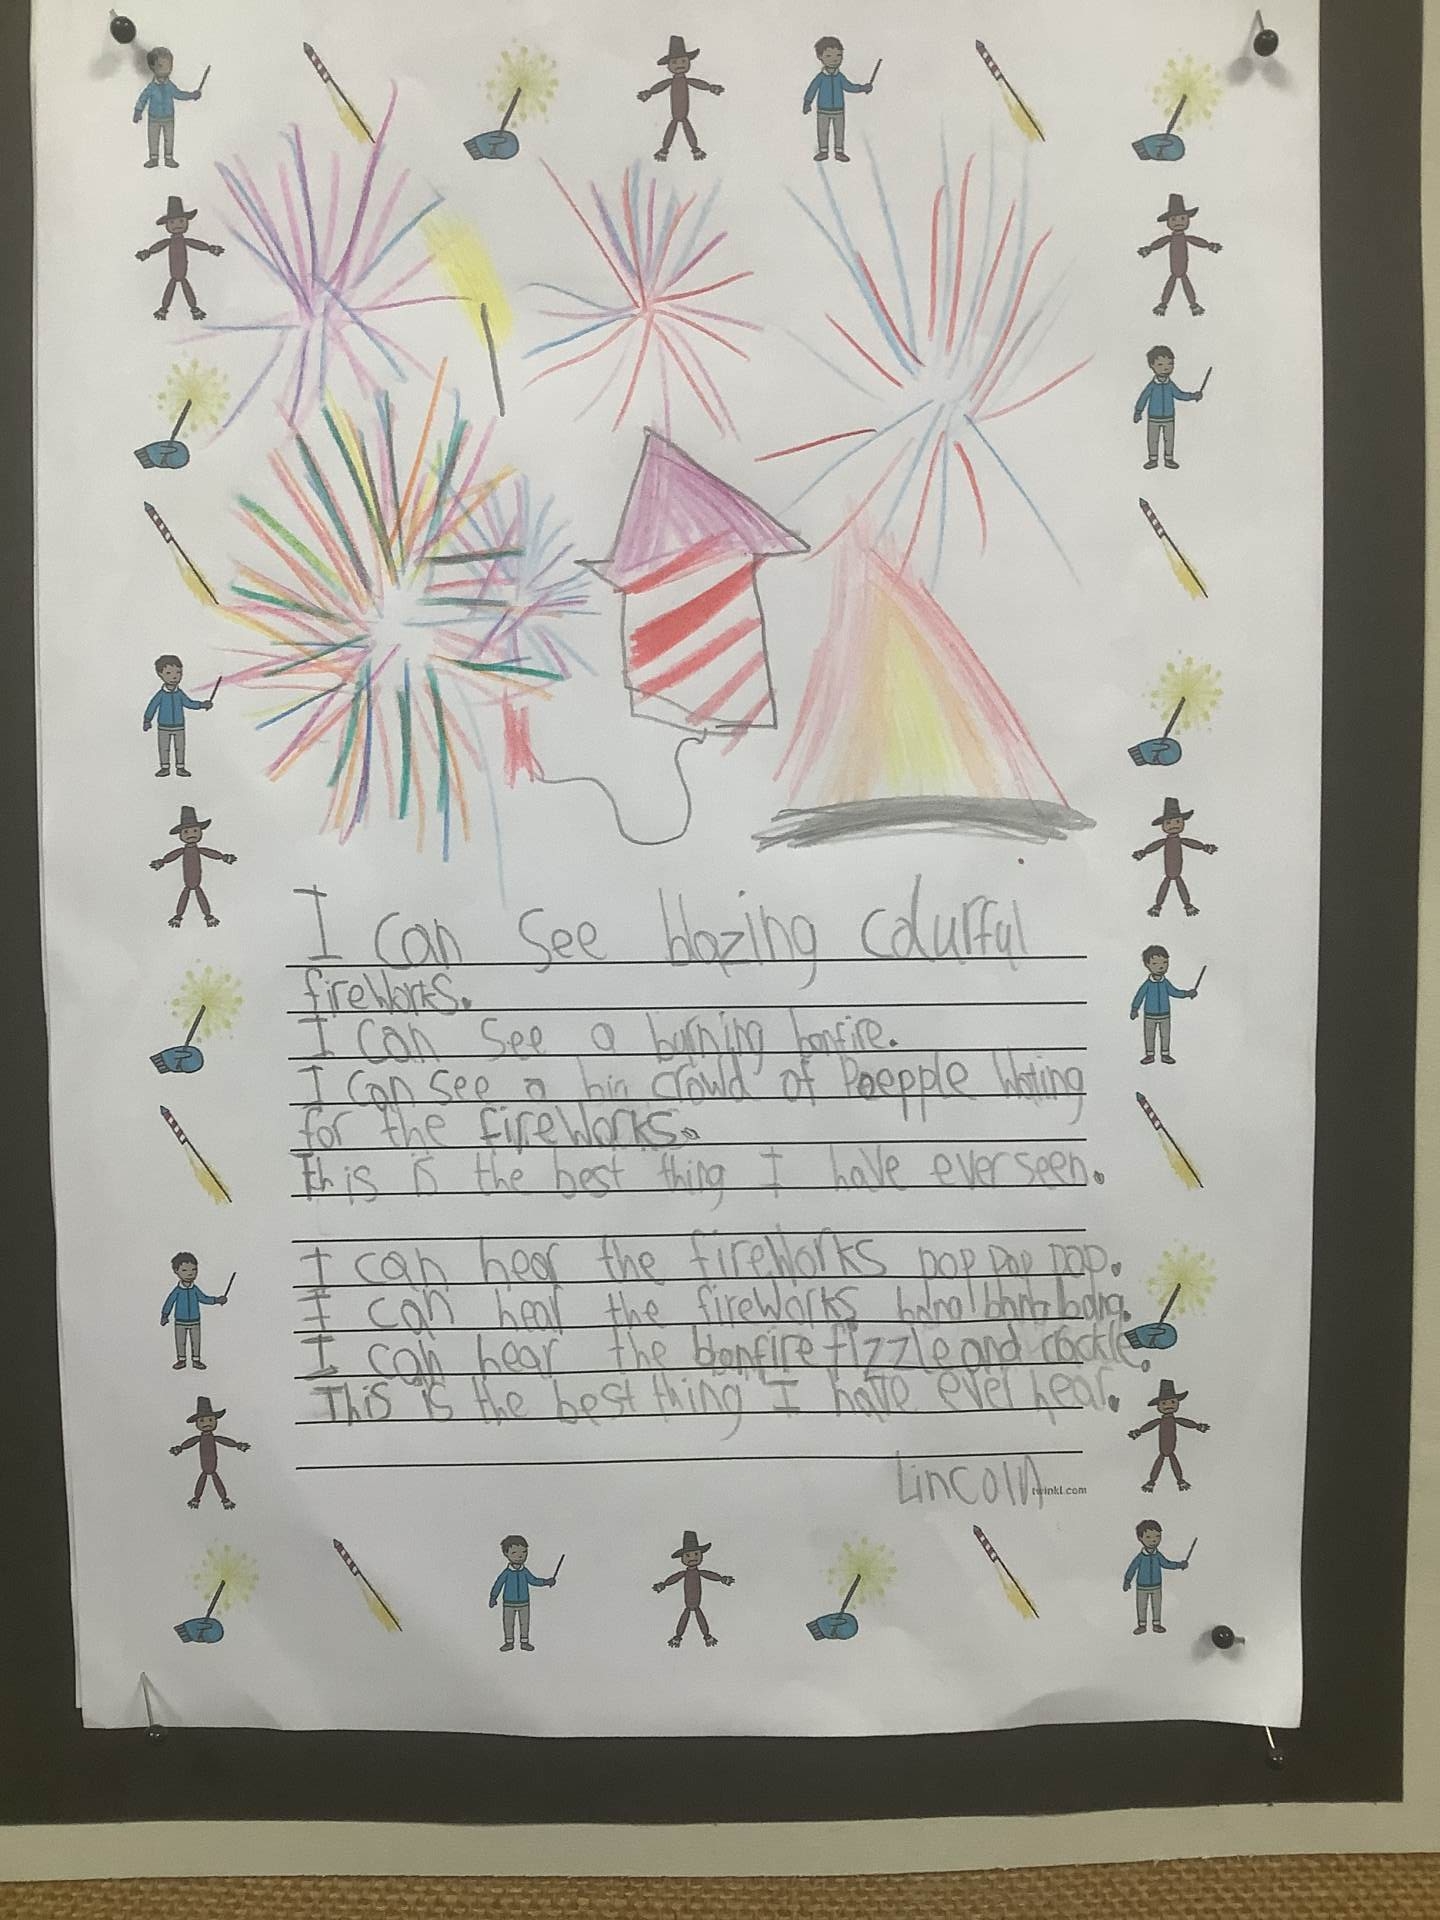 I can see blazing colurful
fireworks.
I can see a burning bonfire.
I can see a big crowd of Poepple Wating
for the fireworks.
This is the best thing I have ever seen.
I can hear the fireworks pop pop pop.
I can hear the fireworks bang! bang bang.
I can hear the bonfire fizzle and crackle.
This is the best thing I have ever hear.
Lincoln
twinkl.com